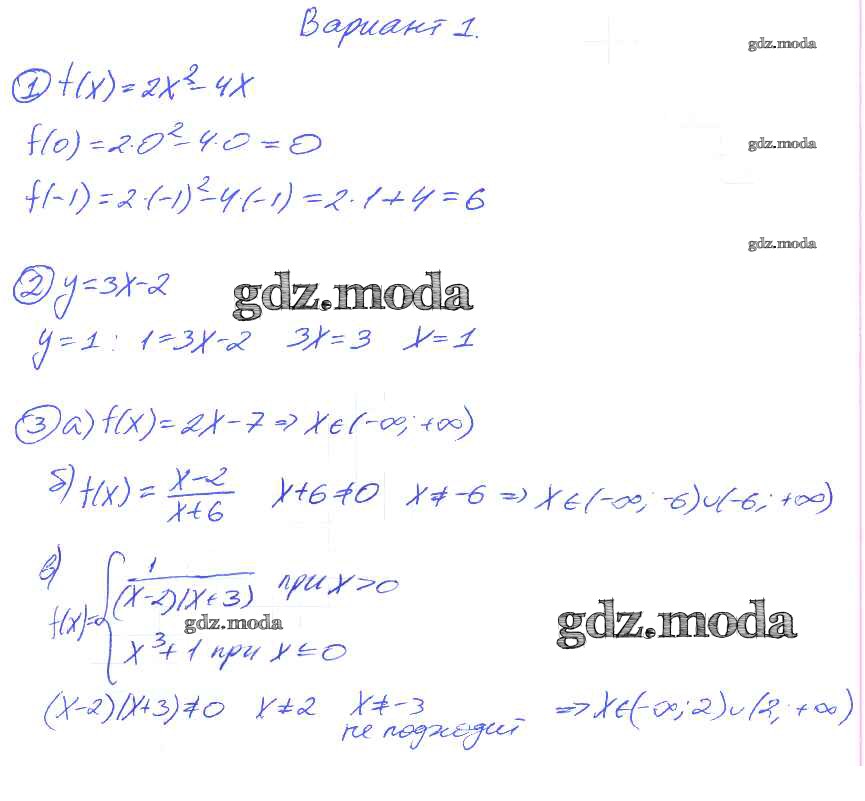 Вариант 1.
gdz.moda
① f(x) = 2x² - 4x
f(0) = 2·0² - 4·0 = 0
gdz.moda
f(-1) = 2·(-1)² - 4·(-1) = 2·1 + 4 = 6
gdz.moda
② y = 3x - 2
gdz.moda
y = 1 : 1 = 3x - 2 3x = 3 x = 1
③ а) f(x) = 2x - 7 => x ∈ (-∞; +∞)
б) f(x) = (x-2)/(x+6) x + 6 ≠ 0 x ≠ -6 => x ∈ (-∞; -6) ∪ (-6; +∞)
в) f(x) = { 1/((x-2)(x+3)) при x > 0
gdz.moda
gdz.moda
x³ + 1 при x ≤ 0
(x-2)(x+3) ≠ 0 x ≠ 2 x ≠ -3 => x ∈ (-∞; 2) ∪ (2; +∞)
не подходит